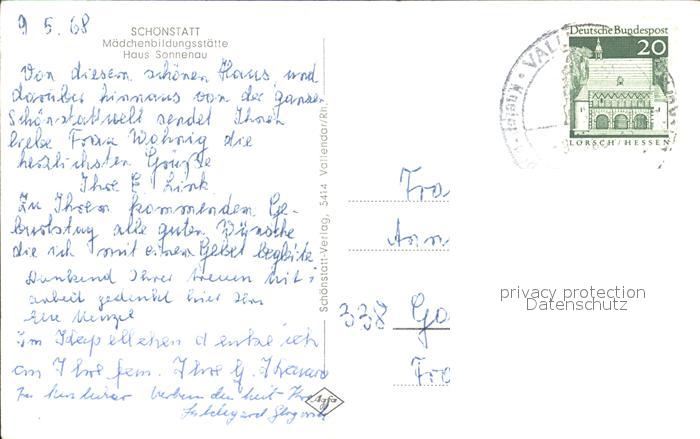 9 5. 68
SCHÖNSTATT
Mädchenbildungsstätte
Haus Sonnenau
Von diesem schönen Haus, und
darüber hinnaus von der ganzen
Schönstattwelt sendet Ihnen
liebe Frau Wohnig die
herzlichsten Grüße
Ihre E Link
Zu Ihrem kommenden Ge-
burtstag alle guten Wünsche
die ich mit einem Gebet begleite
Dankend Ihrer treuen Mit-
arbeit gedenkt hier Ihre
Menzel
Im Kapellchen denke ich
an Ihre fam. Ihre G.
verbunden
Schönstatt-Verlag, 5414 Vallendar/Rh.
Agfa
Deutsche Bundespost
20
LORSCH/HESSEN
VALL
Fra
338 Go
Fra
privacy protection
Datenschutz